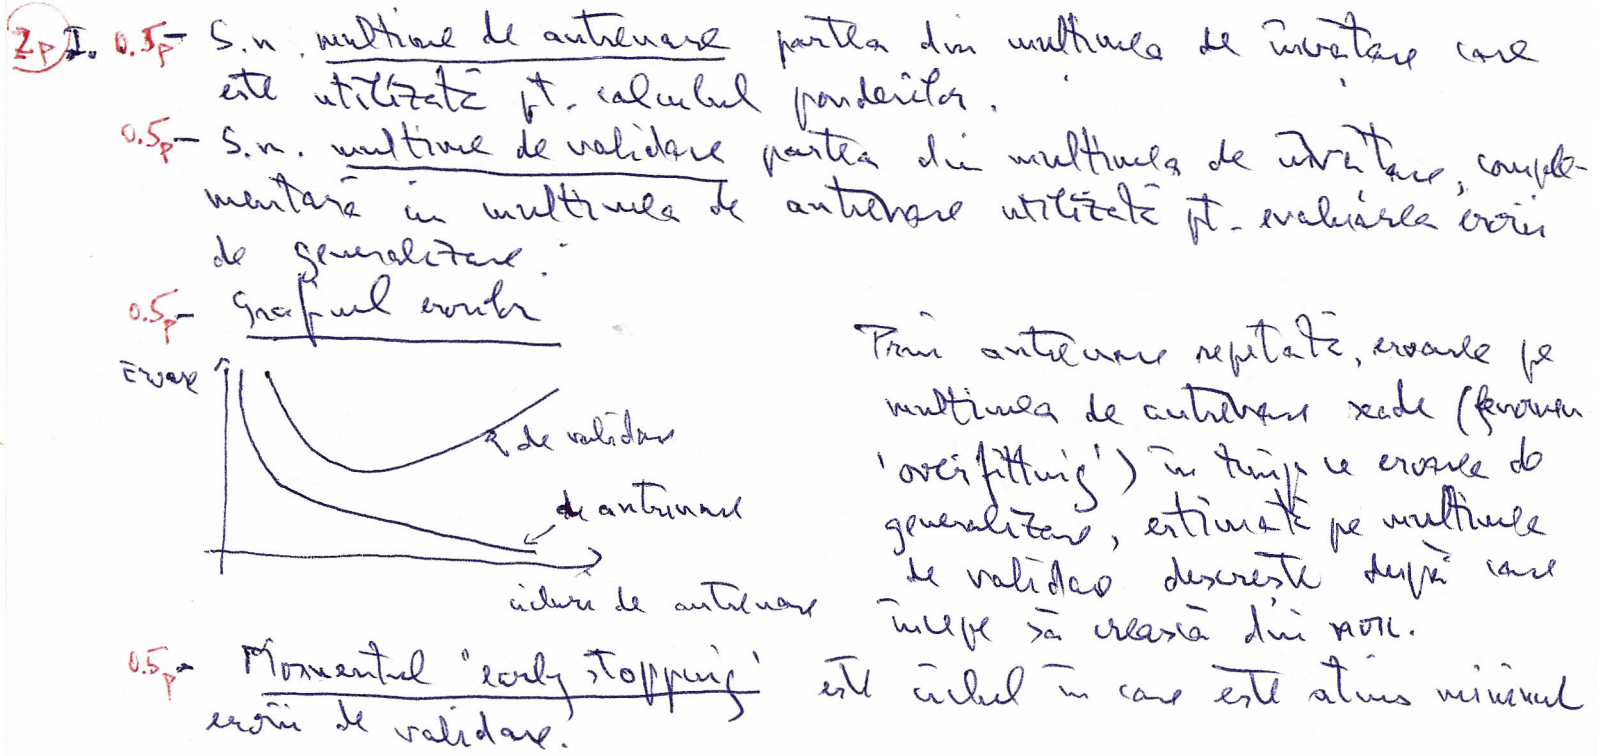 2p I. 0.5p - S.n. multime de antrenare partea din multimea de învătare care
este utilizată pt. calculul ponderilor.
0.5p - S.n. multime de validare partea din multimea de învătare, comple-
mentară cu multimea de antrenare utilizată pt. evaluarea erorii
de generalizare.
0.5p - Graficul erorilor
Eroare
de validare
de antrenare
cicluri de antrenare
Prin antrenare repetată, eroarea pe
multimea de antrenare scade (fenomen
'overfitting') în timp ce eroarea de
generalizare, estimată pe multimea
de validare descreste după care
începe să crească din nou.
0.5p - Momentul 'early stopping' este ciclul în care este atins minimul
erorii de validare.